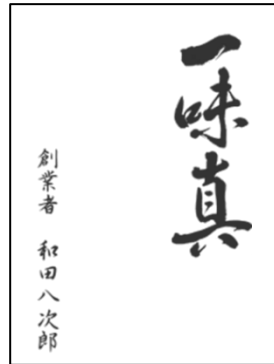 一味真
創業者　和田八次郎